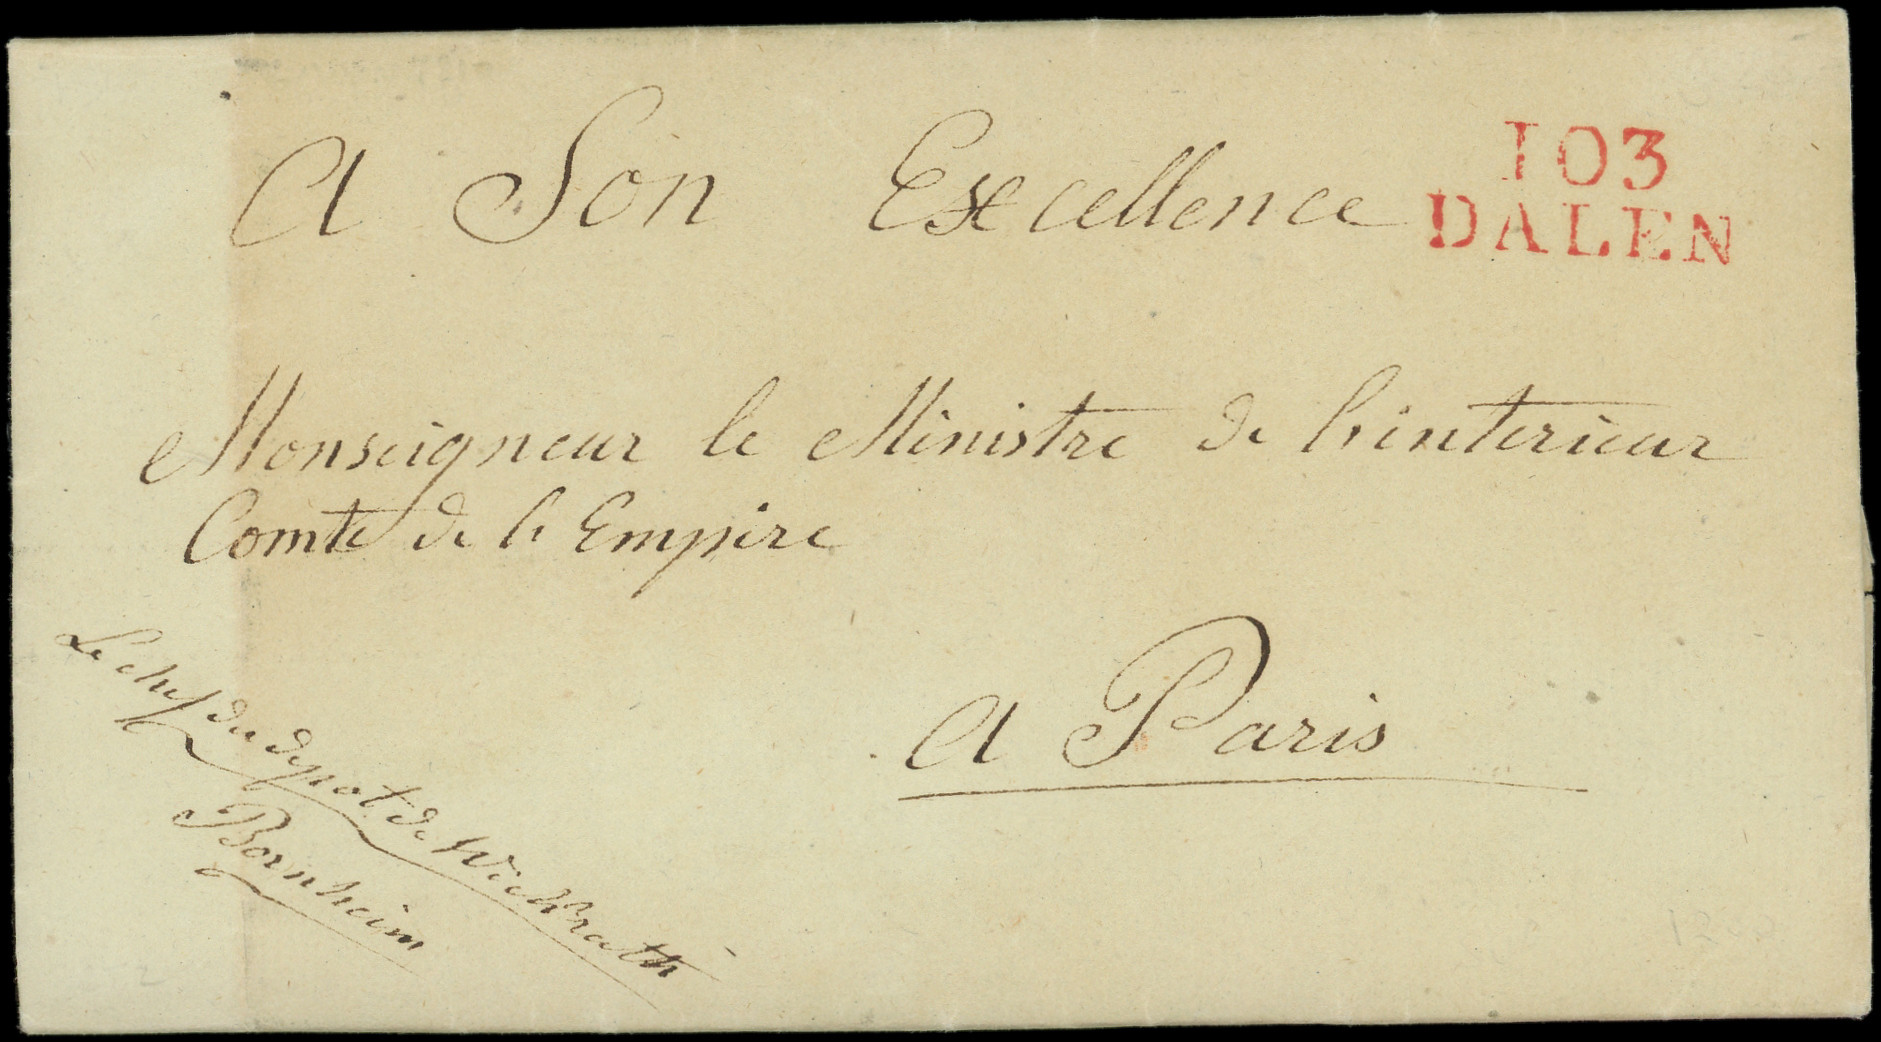 A Son Excellence
103
DALEN
Monseigneur le Ministre de l'interieur
Comte de l'Empire
A Paris
Le chef du depot de Wickrath
Bornheim